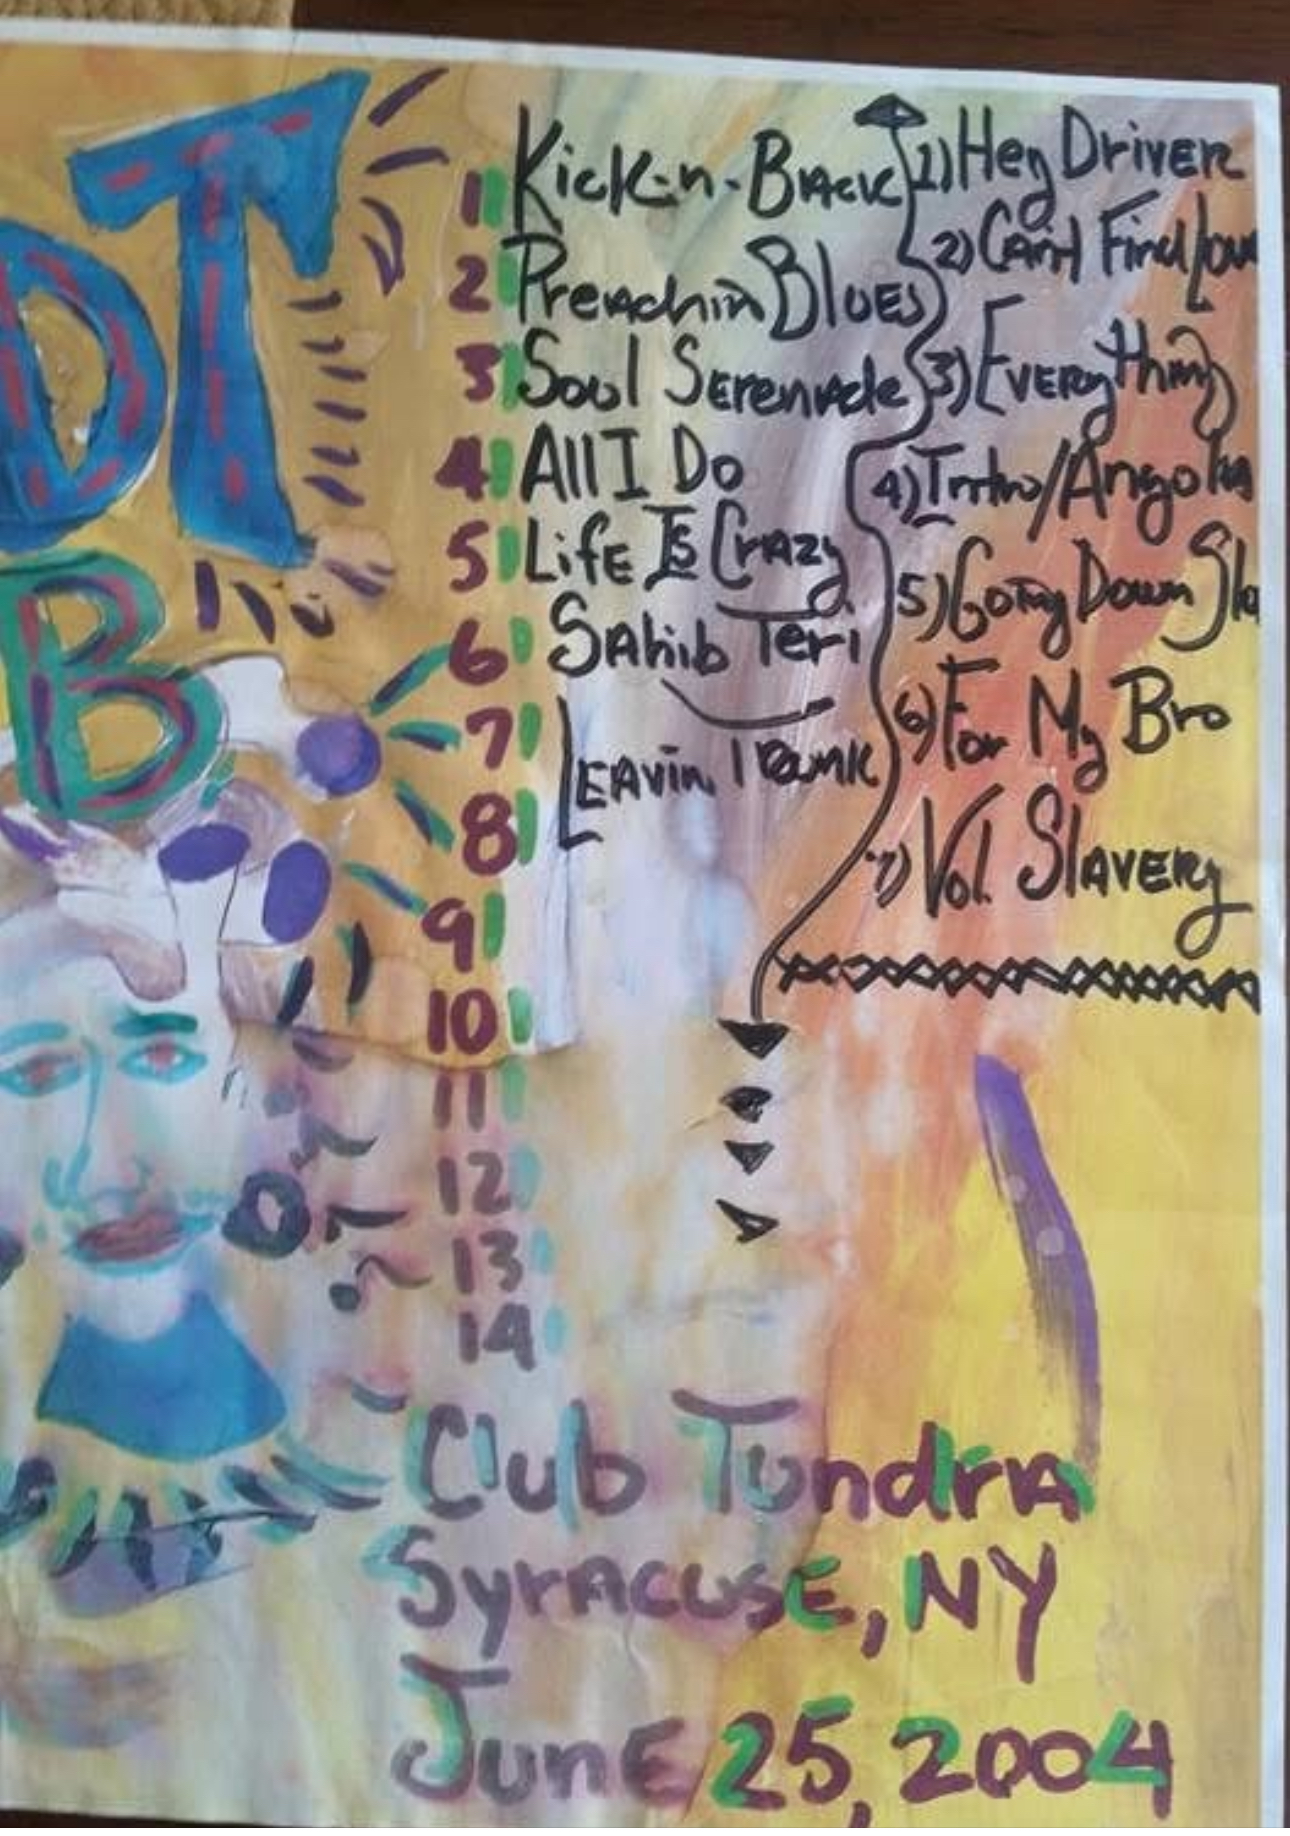 DT
B
1 Kick-n-Back
2 Preachin Blues
3 Soul Serenade
4 All I Do
5 Life Is Crazy
6 Sahib Teri
7 Leavin Trunk
8
9
10
11
12
13
14
1) Hey Driver
2) Can't Find Lov
3) Everything
4) Intro/Angola
5) Going Down Slo
6) For My Bro
7) Vol. Slavery
Club Tundra
Syracuse, NY
June 25, 2004